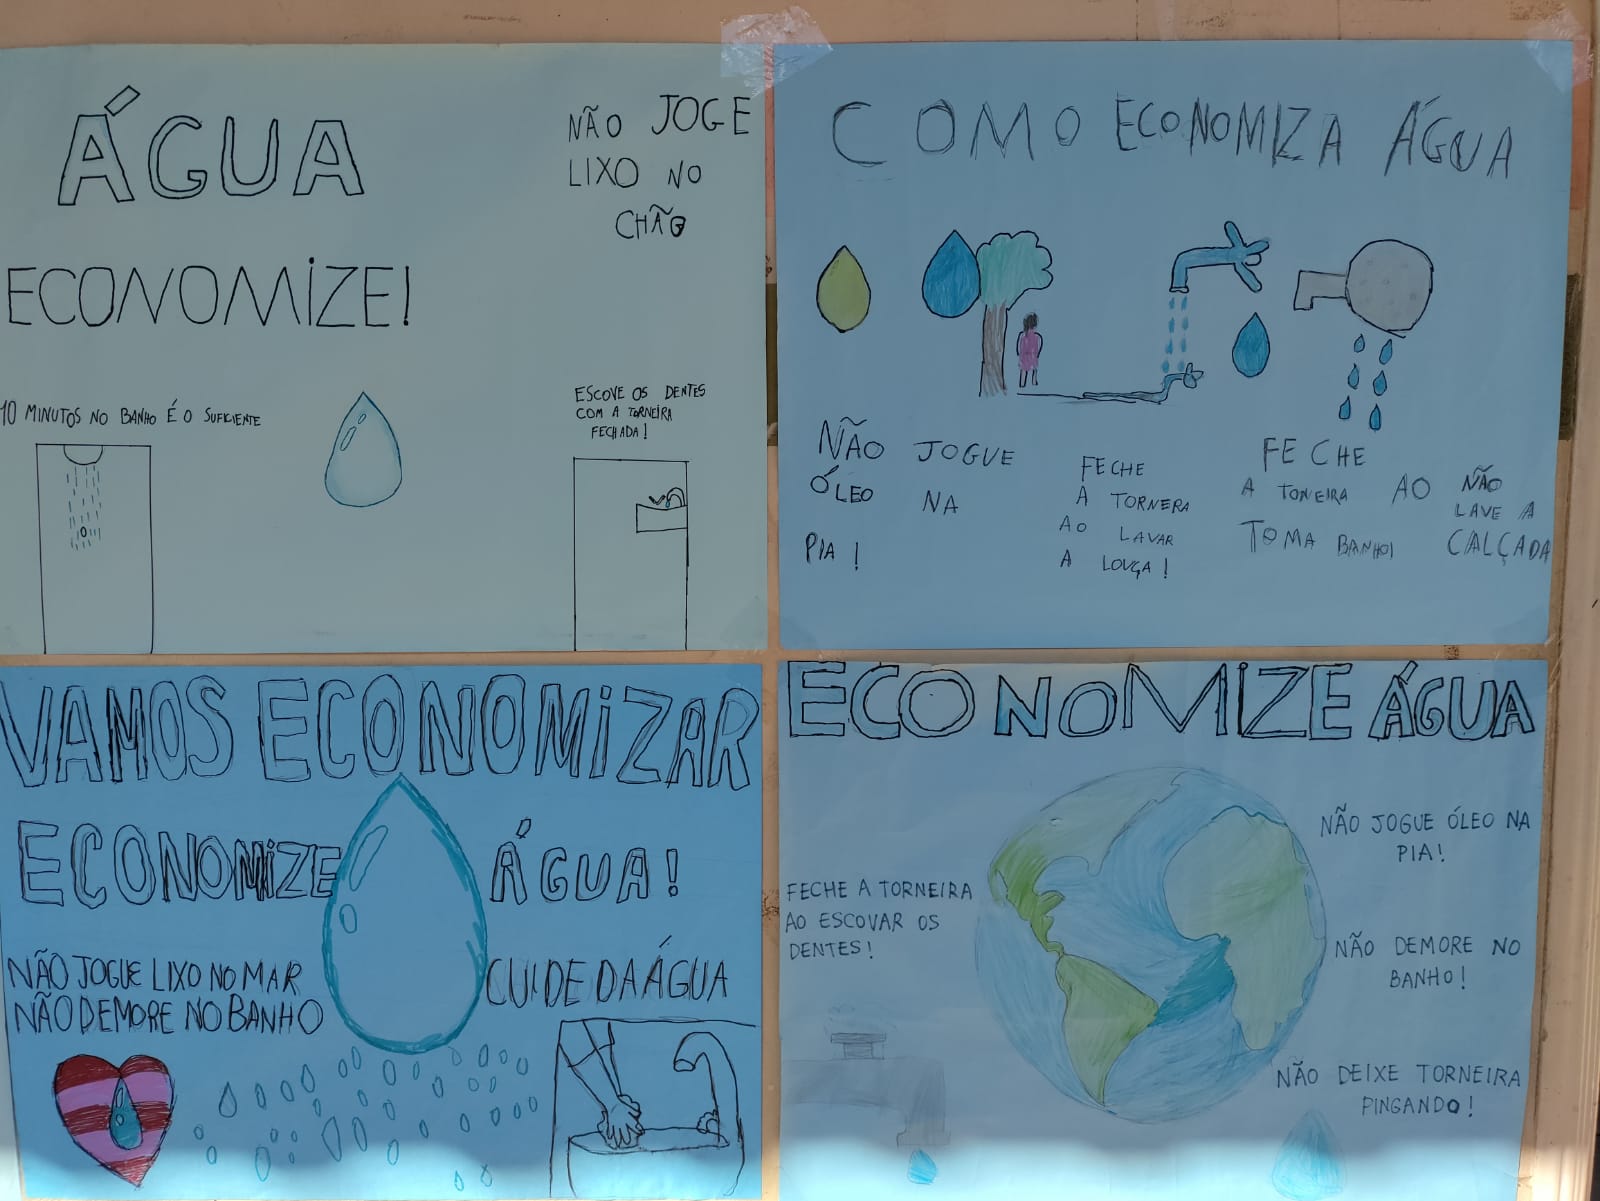 ÁGUA
ECONOMIZE!
NÃO JOGE
LIXO NO
CHÃO
10 MINUTOS NO BANHO É O SUFICIENTE
ESCOVE OS DENTES
COM A TORNEIRA
FECHADA!
COMO ECONOMIZA ÁGUA
NÃO JOGUE
ÓLEO NA
PIA!
FECHE
A TORNERA
AO LAVAR
A LOUÇA!
FECHE
A TONEIRA AO
TOMA BANHO!
NÃO
LAVE A
CALÇADA
VAMOS ECONOMIZAR
ECONOMIZE ÁGUA!
NÃO JOGUE LIXO NO MAR
NÃO DEMORE NO BANHO
CUIDE DA ÁGUA
ECONOMIZE ÁGUA
FECHE A TORNEIRA
AO ESCOVAR OS
DENTES!
NÃO JOGUE ÓLEO NA
PIA!
NÃO DEMORE NO
BANHO!
NÃO DEIXE TORNEIRA
PINGANDO!